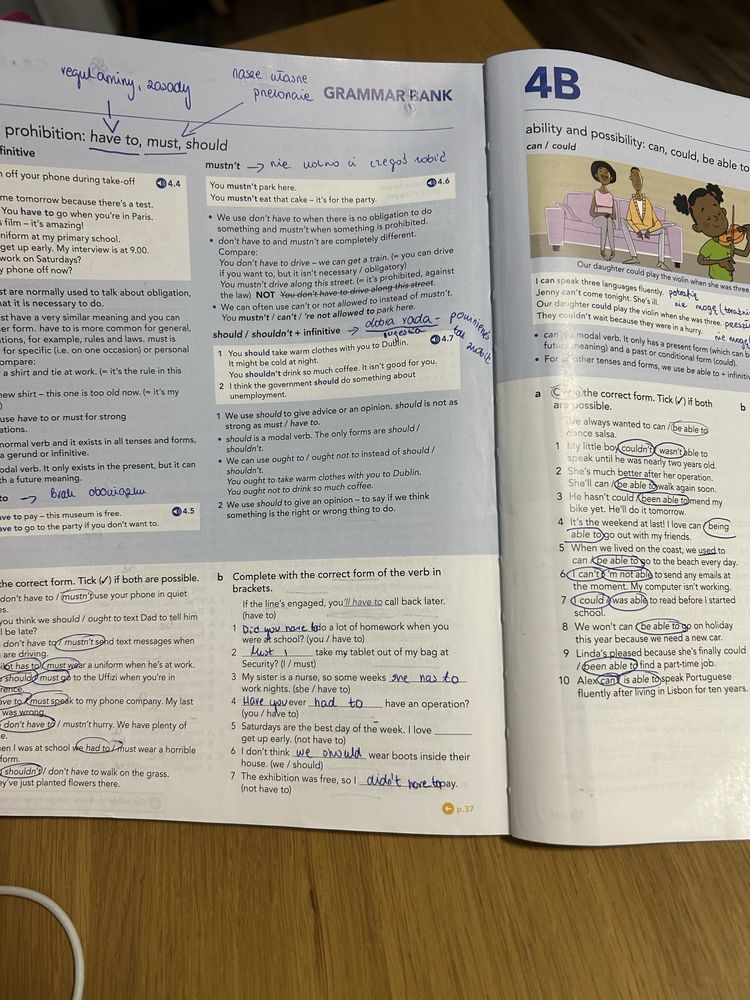 regulaminy, zasady
nasze własne
GRAMMAR BANK
prohibition: have to, must, should
finitive
n off your phone during take-off 4.4
me tomorrow because there's a test.
You have to go when you're in Paris.
s film – it's amazing!
niform at my primary school.
get up early. My interview is at 9.00.
work on Saturdays?
y phone off now?
st are normally used to talk about obligation,
hat it is necessary to do.
st have a very similar meaning and you can
er form. have to is more common for general,
tions, for example, rules and laws. must is
for specific (i.e. on one occasion) or personal
ompare:
a shirt and tie at work. (= it's the rule in this
new shirt – this one is too old now. (= it's my
)
use have to or must for strong
ations.
normal verb and it exists in all tenses and forms,
a gerund or infinitive.
odal verb. It only exists in the present, but it can
th a future meaning.
to → Brak obowiązku
ave to pay – this museum is free. 4.5
ave to go to the party if you don't want to.
mustn't → nie wolno ci czegoś robić
You mustn't park here. 4.6
You mustn't eat that cake – it's for the party.
• We use don't have to when there is no obligation to do
something and mustn't when something is prohibited.
• don't have to and mustn't are completely different.
Compare:
You don't have to drive – we can get a train. (= you can drive
if you want to, but it isn't necessary / obligatory)
You mustn't drive along this street. (= it's prohibited, against
the law) NOT You don't have to drive along this street.
• We can often use can't or not allowed to instead of mustn't.
You mustn't / can't / 're not allowed to park here.
should / shouldn't + infinitive → dobra rada - powinieneś
sugestia tak zrobić
1 You should take warm clothes with you to Dublin. 4.7
It might be cold at night.
You shouldn't drink so much coffee. It isn't good for you.
2 I think the government should do something about
unemployment.
1 We use should to give advice or an opinion. should is not as
strong as must / have to.
• should is a modal verb. The only forms are should /
shouldn't.
• We can use ought to / ought not to instead of should /
shouldn't.
You ought to take warm clothes with you to Dublin.
You ought not to drink so much coffee.
2 We use should to give an opinion – to say if we think
something is the right or wrong thing to do.
the correct form. Tick (✓) if both are possible.
don't have to / mustn't use your phone in quiet
es.
you think we should / ought to text Dad to tell him
ll be late?
don't have to / mustn't send text messages when
are driving.
has to / must wear a uniform when he's at work.
should / must go to the Uffizi when you're in
rence.
ave to / must speak to my phone company. My last
was wrong.
don't have to / mustn't hurry. We have plenty of
e.
en I was at school we had to / must wear a horrible
form.
shouldn't / don't have to walk on the grass.
ey've just planted flowers there.
b Complete with the correct form of the verb in
brackets.
If the line's engaged, you'll have to call back later.
(have to)
1 Did you have to do a lot of homework when you
were at school? (you / have to)
2 Must I take my tablet out of my bag at
Security? (I / must)
3 My sister is a nurse, so some weeks she has to
work nights. (she / have to)
4 Have you ever had to have an operation?
(you / have to)
5 Saturdays are the best day of the week. I love
get up early. (not have to)
6 I don't think we should wear boots inside their
house. (we / should)
7 The exhibition was free, so I didn't have to pay.
(not have to)
p.37
4B
ability and possibility: can, could, be able to
can / could
Our daughter could play the violin when she was three
I can speak three languages fluently. potrafię
Jenny can't come tonight. She's ill. nie mogę
Our daughter could play the violin when she was three.
They couldn't wait because they were in a hurry.
• can is a modal verb. It only has a present form (which can b
future meaning) and a past or conditional form (could).
• For other tenses and forms, we use be able to + infinitiv
a Circle the correct form. Tick (✓) if both b
are possible.
I've always wanted to can / be able to
dance salsa.
1 My little boy couldn't / wasn't able to
speak until he was nearly two years old.
2 She's much better after her operation.
She'll can / be able to walk again soon.
3 He hasn't could / been able to mend my
bike yet. He'll do it tomorrow.
4 It's the weekend at last! I love can / being
able to go out with my friends.
5 When we lived on the coast, we used to
can / be able to go to the beach every day.
6 I can't / 'm not able to send any emails at
the moment. My computer isn't working.
7 I could / was able to read before I started
school.
8 We won't can / be able to go on holiday
this year because we need a new car.
9 Linda's pleased because she's finally could
/ been able to find a part-time job.
10 Alex can / is able to speak Portuguese
fluently after living in Lisbon for ten years.